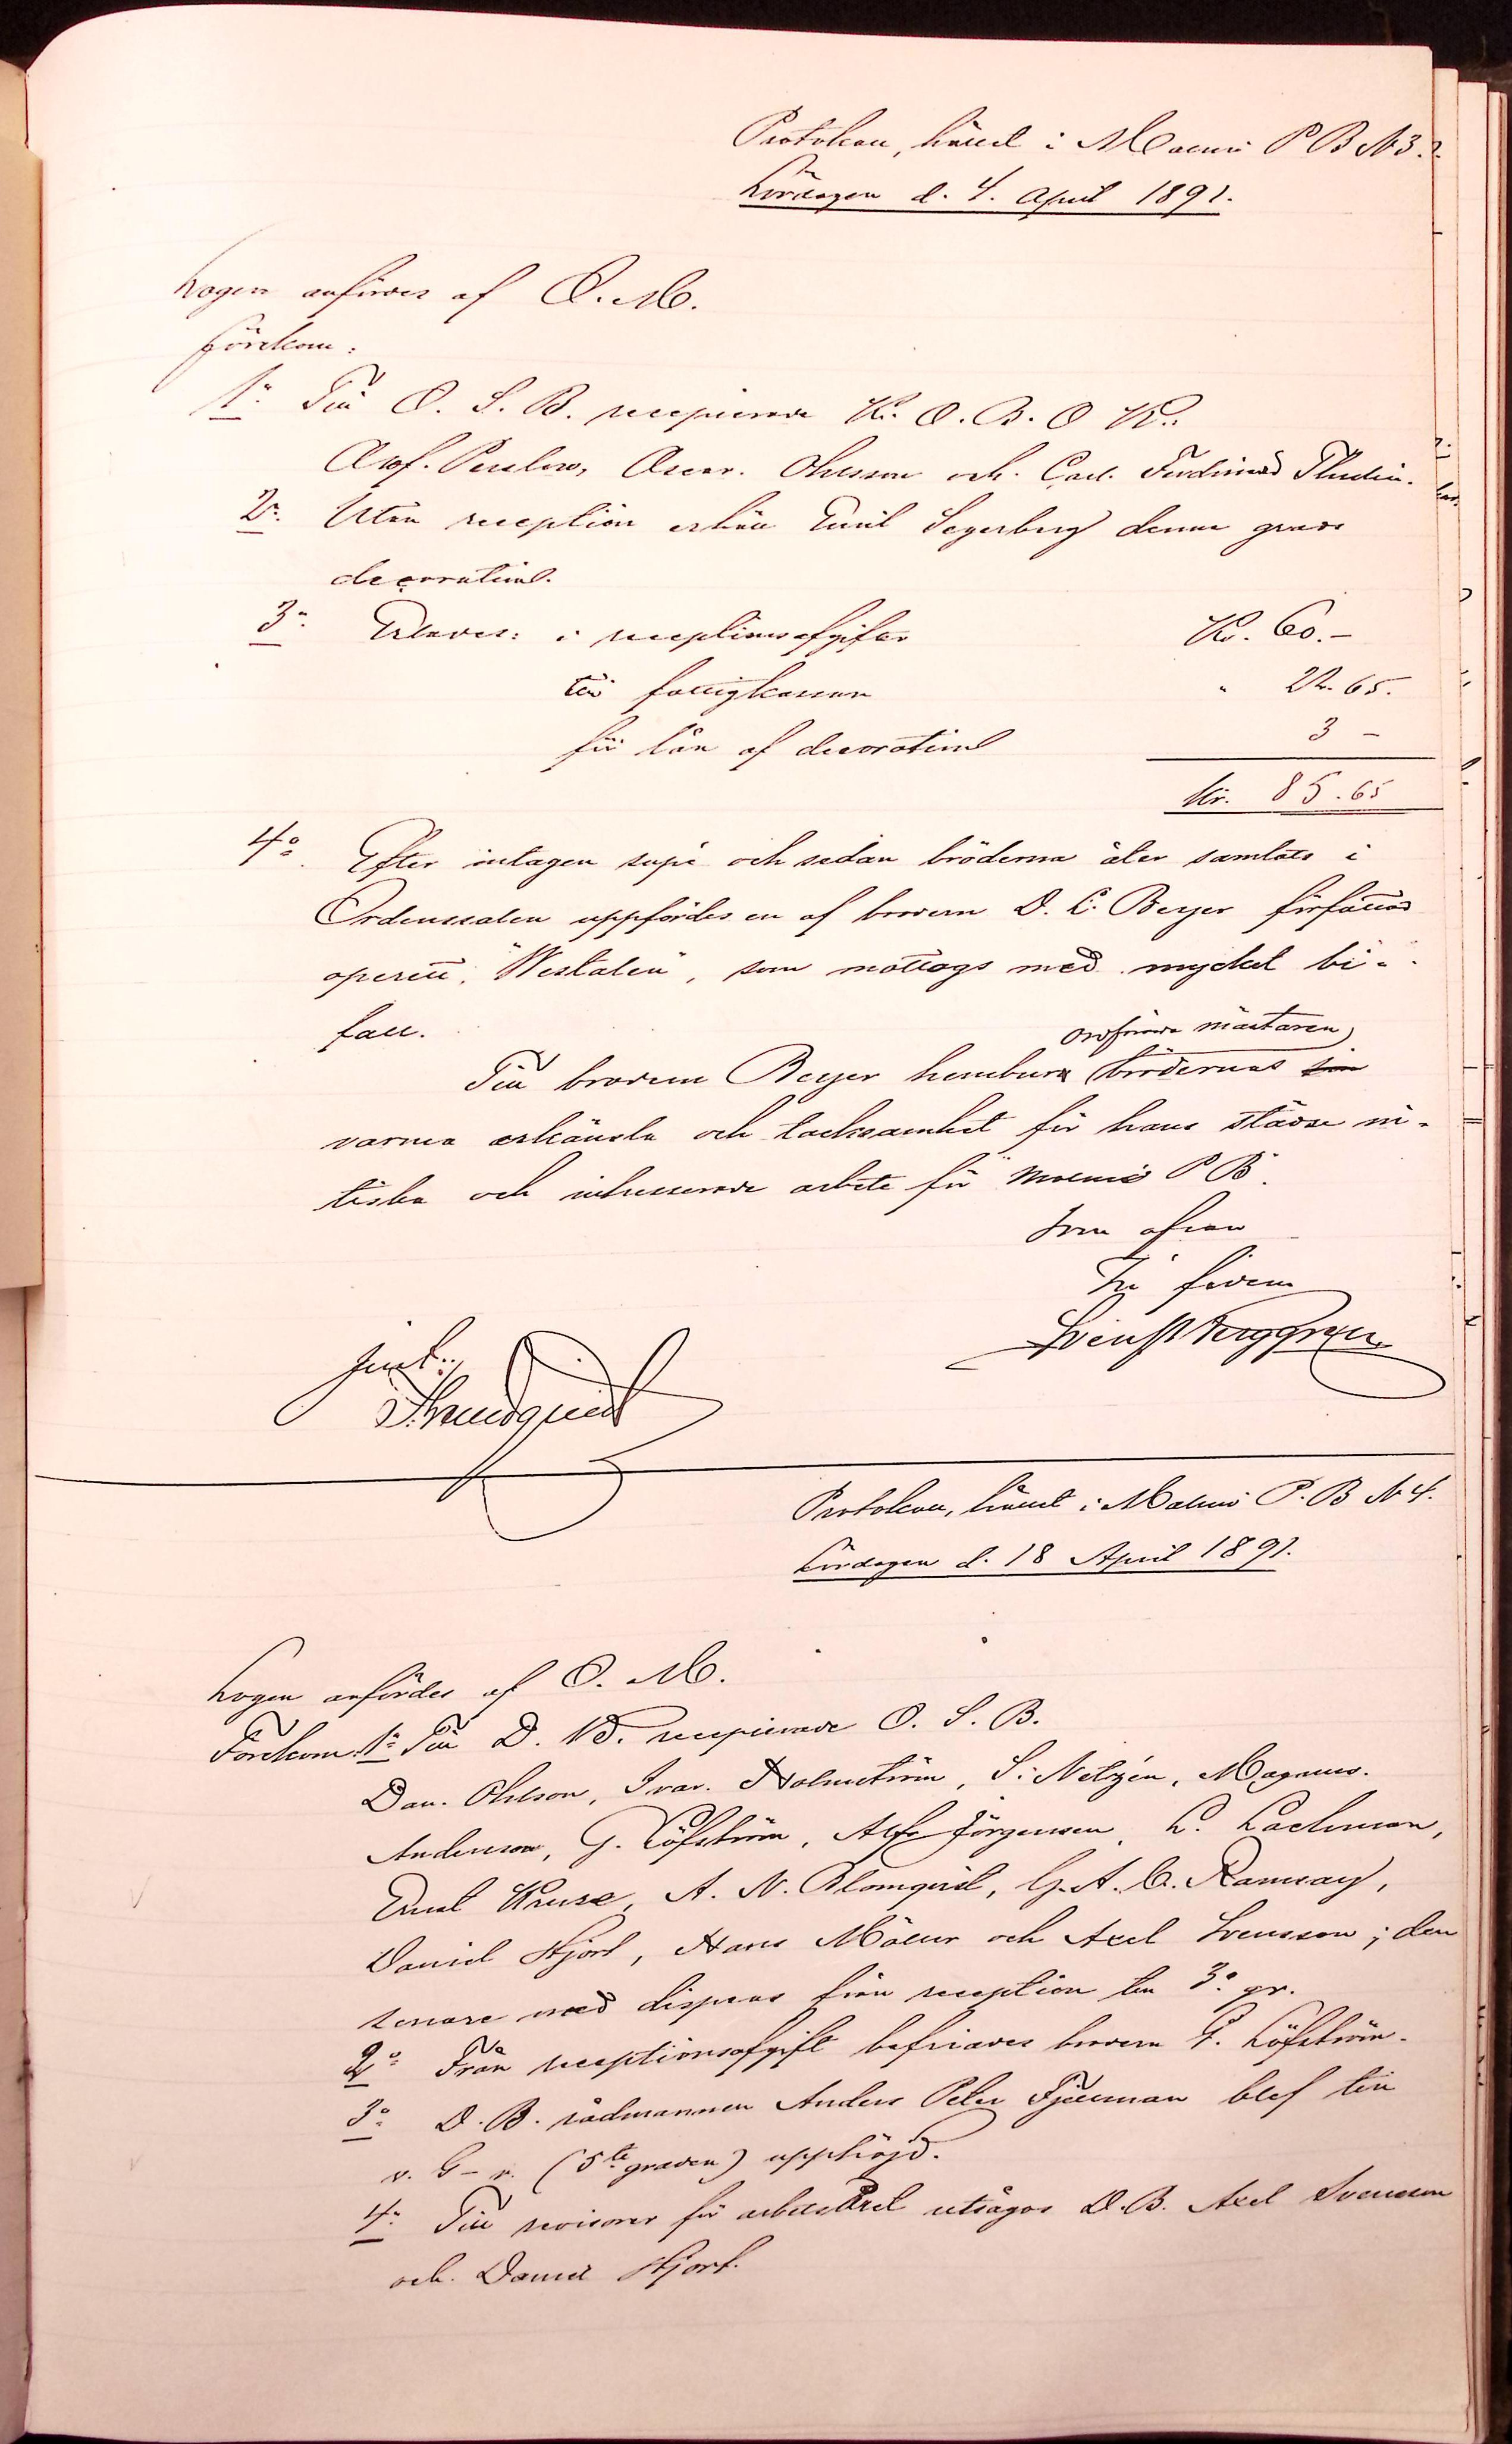 Protokoll, hållet i Malmö P B N 3.
Lördagen d. 4. April 1891.
Logen anfördes af O. M.
Förekom:
1o Till O. S. B. recipierade K. O. B. O K.:
Oscar. Ohlsson och. Carl. Ferdinand Thulin.
2o. Utan reception erhöll Emil Segerberg denna grads
decoration.
3o. Erlades: i receptionsafgifter Kr. 60.-
till fattigkassan " 22.65.
för lån af decoration 3 -
Kr. 85.65
4o. Efter intagen supé och sedan bröderna åter samlats i
Ordenssalen uppfördes en af brodern D. C. Beyer författad
operett, "Westalen", som mottogs med mycket bi-
fall.
ordförande mästaren
Till brodern Beyer hembura brödernas sin
varma erkänsla och tacksamhet för hans städse ni-
tiska och intresserade arbete för Malmö P B.
Som ofvan
In fidem
Sven Berggren
Just:
Protokoll, hållet i Malmö P. B N 4.
Lördagen d. 18 April 1891.
Logen anfördes af O. M.
Förekom 1o Till D. B. recipierade O. S. B.
Dan. Ohlson, Ivar. Holmström, S. Nelzén, Magnus.
Anderson, G. Löfström, Alfr Jörgensen, L. Lachman,
Ernst Kruse, A. N. Blomqvist, G. A. C. Ramsay,
Daniel Hjort, Hans Möller och Axel Svensson; den
senare med dispens från reception till 3o gr.
2o Från receptionsafgift befriades brodern G. Löfström.
3o D. B. rådmannen Anders Peter Fjellman blef till
v. G-r. (5te graden) upphöjd.
4o Till revisorer för arbetsåret utsågos D. B. Axel Svensson
och. Daniel Hjort.